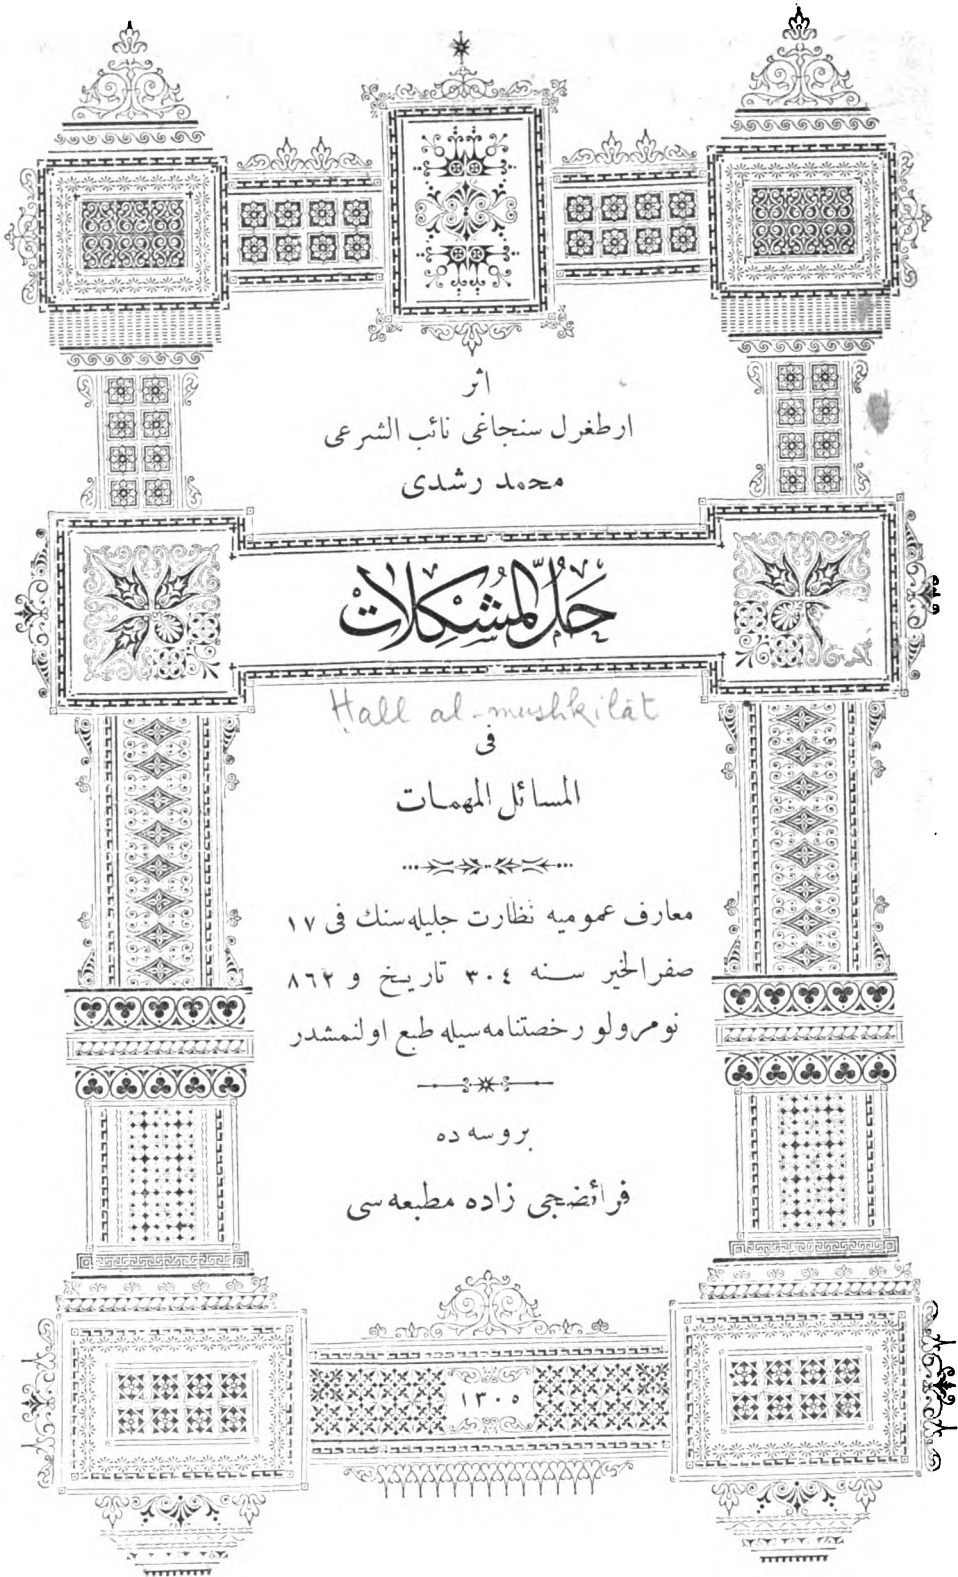 اثر
ارطغرل سنجاغی نائب الشرعی
محمد رشدی
حَلُّ المُشْكِلَات
Ḥall al-mushkilāt
فی
المسائل المهمات
معارف عمومیه نظارت جلیله‌سنك فی ١٧
صفر الخیر سنه ٣٠٤ تاریخ و ٨٦٢
نومرولو رخصتنامه‌سیله طبع اولنمشدر
بروسه ده
فرائضجی زاده مطبعه‌سی
١٣٠٥